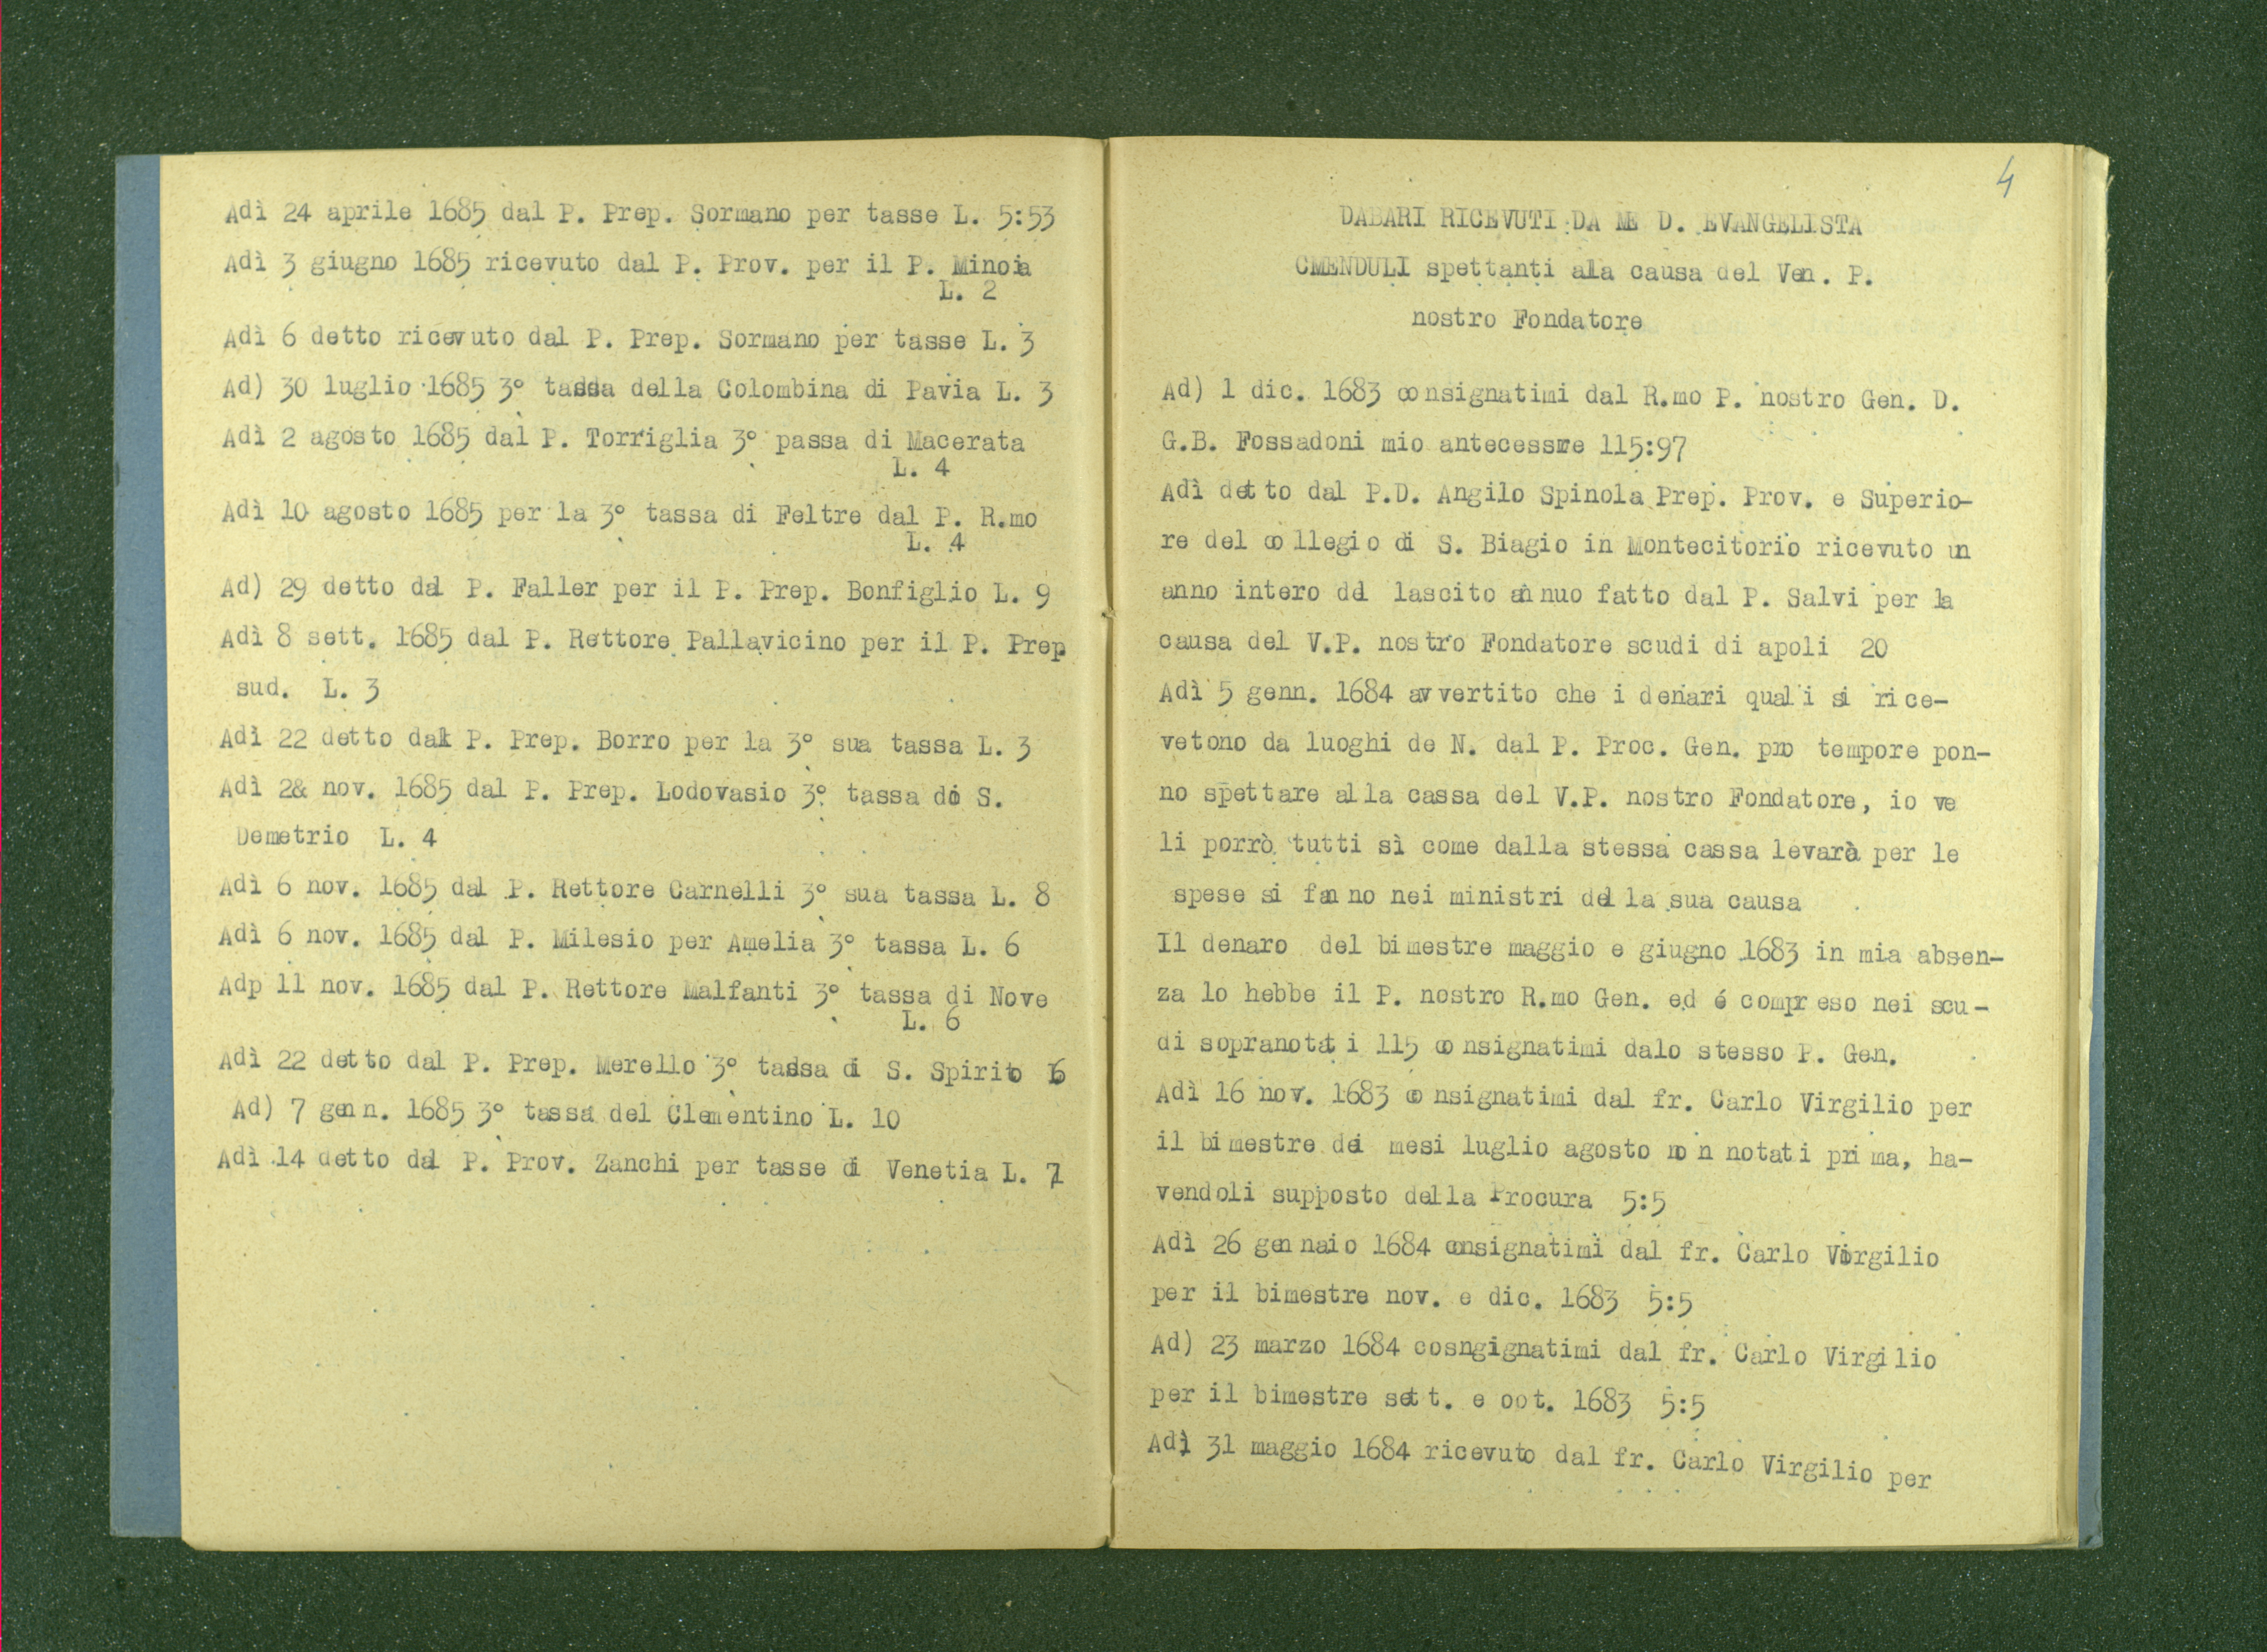 Adì 24 aprile 1685 dal P. Prep. Sormano per tasse L. 5:53
Adì 3 giugno 1685 ricevuto dal P. Prov. per il P. Minoia
L. 2
Adì 6 detto ricevuto dal P. Prep. Sormano per tasse L. 3
Ad) 30 luglio 1685 3° tassa della Colombina di Pavia L. 3
Adì 2 agosto 1685 dal P. Torriglia 3° passa di Macerata
L. 4
Adì 10 agosto 1685 per la 3° tassa di Feltre dal P. R.mo
L. 4
Ad) 29 detto dal P. Faller per il P. Prep. Bonfiglio L. 9
Adì 8 sett. 1685 dal P. Rettore Pallavicino per il P. Prep.
sud. L. 3
Adì 22 detto dal P. Prep. Borro per la 3° sua tassa L. 3
Adì 2& nov. 1685 dal P. Prep. Lodovasio 3° tassa di S.
Demetrio L. 4
Adì 6 nov. 1685 dal P. Rettore Carnelli 3° sua tassa L. 8
Adì 6 nov. 1685 dal P. Milesio per Amelia 3° tassa L. 6
Adp 11 nov. 1685 dal P. Rettore Malfanti 3° tassa di Nove
L. 6
Adì 22 detto dal P. Prep. Merello 3° tassa di S. Spirito 6
Ad) 7 genn. 1685 3° tassa del Clementino L. 10
Adì 14 detto dal P. Prov. Zanchi per tasse di Venetia L.
4
DABARI RICEVUTI DA ME D. EVANGELISTA
CMENDULI spettanti alla causa del Ven. P.
nostro Fondatore
Ad) 1 dic. 1683 consignatimi dal R.mo P. nostro Gen. D.
G.B. Fossadoni mio antecessore 115:97
Adì detto dal P.D. Angilo Spinola Prep. Prov. e Superio-
re del collegio di S. Biagio in Montecitorio ricevuto un
anno intero del lascito annuo fatto dal P. Salvi per la
causa del V.P. nostro Fondatore scudi di apoli 20
Adì 5 genn. 1684 avvertito che i denari quali si rice-
vetono da luoghi de N. dal P. Proc. Gen. pro tempore pon-
no spettare alla cassa del V.P. nostro Fondatore, io ve
li porrò tutti sì come dalla stessa cassa levarò per le
spese si fanno nei ministri della sua causa
Il denaro del bimestre maggio e giugno 1683 in mia absen-
za lo hebbe il P. nostro R.mo Gen. ed é compreso nei scu-
di sopranotati 115 consignatimi dalo stesso P. Gen.
Adì 16 nov. 1683 consignatimi dal fr. Carlo Virgilio per
il bimestre dei mesi luglio agosto non notati prima, ha-
vendoli supposto della Procura 5:5
Adì 26 gennaio 1684 consignatimi dal fr. Carlo Virgilio
per il bimestre nov. e dic. 1683 5:5
Ad) 23 marzo 1684 cosngignatimi dal fr. Carlo Virgilio
per il bimestre sett. e oot. 1683 5:5
Adì 31 maggio 1684 ricevuto dal fr. Carlo Virgilio per